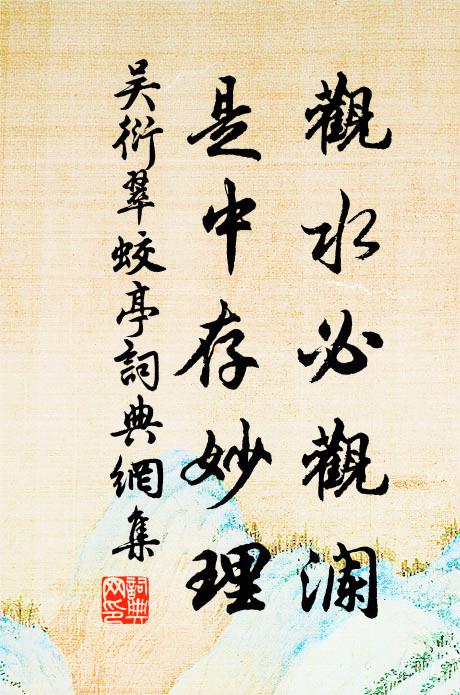 觀水必觀澜
是中存妙理
吴衍翠蛟亭詞典網集
詞典